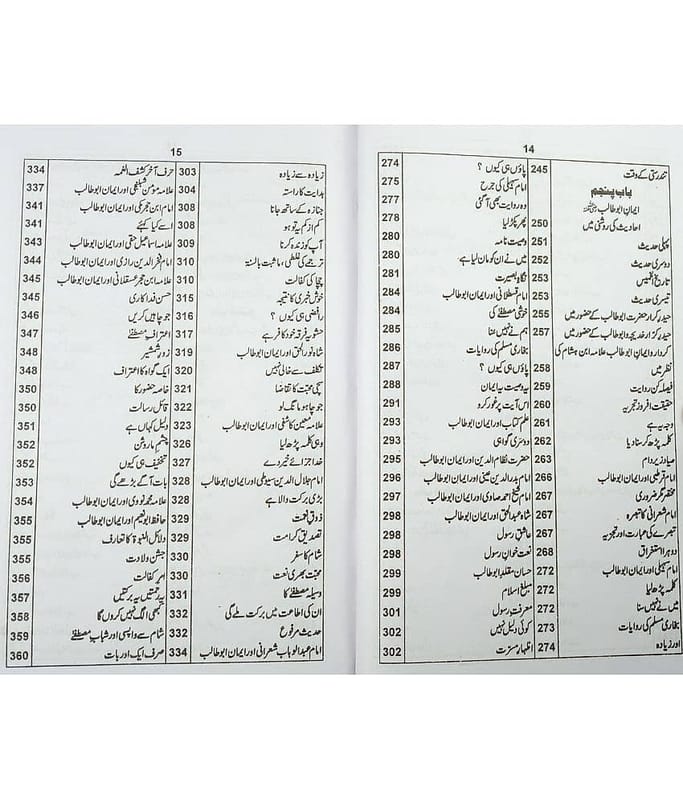 14
تندرستی کے وقت 245
باب پنجم
ایمان ابوطالب
احادیث کی روشنی میں 250
پہلی حدیث 251
دوسری حدیث 252
تاریخ الخمیس 253
تیسری حدیث 253
حیدر کرار حضرت ابوطالب کے حضور میں 255
حیدر کرار خدیجہ و ابوطالب کے حضور میں 257
کردار و ایمان ابوطالب علامہ ابن ہشام کی
نظر میں 258
فیصلہ کن روایت 259
حقیقت افروز تجزیہ 260
وجہ یہ ہے 261
کلمہ پڑھ کر سنا دیا 262
صیاد زیر دام 263
امام قرطبی اور ایمان ابوطالب 266
مختصر مگر ضروری 267
امام شعرانی کا تبصرہ 267
تبصرے کی عبارت اور تجزیہ 267
دوہرا استغراق 268
امام سہیلی اور ایمان ابوطالب 272
کلمہ پڑھ لیا 272
میں نے نہیں سنا 272
بخاری مسلم کی روایات 273
اور زیادہ 274
پاؤں ہی کیوں ؟ 274
امام سہیلی کی جرح 275
وہ روایت بھی آ گئی 277
پھر پکڑ لیا 278
وصیت نامہ 280
میں نے ان کو مان لیا ہے 280
نگاہ بصیرت 281
امام قسطلانی اور ایمان ابوطالب 284
خوشی مصطفےٰ کی 284
ہم نے نہیں سنا 285
بخاری مسلم کی روایات 286
پاؤں ہی کیوں ؟ 287
یہ وصیت یہ ایمان 288
اس آیت پر غور کرو 291
علم کتاب اور ایمان ابوطالب 293
دوسری گواہی 293
حضرت نظام الدین اور ایمان ابوطالب 295
امام بدرالدین عینی اور ایمان ابوطالب 296
امام شیخ احمد صاوی اور ایمان ابوطالب 297
شاہ عبدالحق اور ایمان ابوطالب 298
عاشق رسول 297
نعت خوان رسول 298
حسان مقلد ابوطالب 299
مبلغ اسلام 299
معرفت رسول 301
کوئی دلیل نہیں 302
اظہار مسرت 302
15
زیادہ سے زیادہ 303
ہدایت کا راستہ 304
جنازہ کے ساتھ جانا 308
کم از کم یہ تو ہو 308
آپ کو زندہ کرنا 309
ترجمے کی غلطی، ماثبت بالسنۃ 310
چچا کی کفالت 310
خوش خبری کا نتیجہ 315
رافضی ہی کیوں ؟ 316
حشویہ فرقہ خود کافر ہے 317
شاہ نورالحق اور ایمان ابوطالب 319
تکلف سے خالی نہیں 320
سچی محبت کا تقاضا 321
جو چاہو مانگ لو 322
علامہ معین کاشفی اور ایمان ابوطالب 323
وہی کلمہ پڑھ لیا 326
خدا جزائے خیر دے 327
امام جلال الدین سیوطی اور ایمان ابوطالب 328
بڑی برکت والا ہے 328
ذوق نعمت 329
تصدیق کرامت 329
شام کا سفر 330
محبت بھری نعت 330
وسیلہ مصطفےٰ کا 331
ان کی اطاعت میں برکت ملے گی 332
حدیث مرفوع 332
امام عبدالوہاب شعرانی اور ایمان ابوطالب 334
حرف آخر کشف الغمہ 334
علامہ مومن شبلنجی اور ایمان ابوطالب 337
امام ابن حجر مکی اور ایمان ابوطالب 341
اسے کیا کہئے 341
علامہ اسماعیل حقی اور ایمان ابوطالب 343
امام فخرالدین رازی اور ایمان ابوطالب 344
علامہ ابن حجر عسقلانی اور ایمان ابوطالب 345
حسن فداکاری 345
جو چاہیں کریں 346
اعتراف مصطفےٰ 347
زور شمشیر 348
ایک گواہ کا اعتراف 348
خاصہ حضور کا 350
قائل رسالت 350
دلیل کہاں ہے 351
چشم ما روشن 352
تخفیف ہی کیوں 352
بات آگے بڑھے گی 353
علامہ محمد نووی اور ایمان ابوطالب 354
حافظ ابونعیم اور ایمان ابوطالب 355
دلائل النبوۃ کا تعارف 355
جشن ولادت 355
امر کفالت 356
یہ رحمتیں یہ برکتیں 357
کبھی الگ نہیں کروں گا 358
شام سے واپسی اور شباب مصطفےٰ 359
صرف ایک اور بات 360